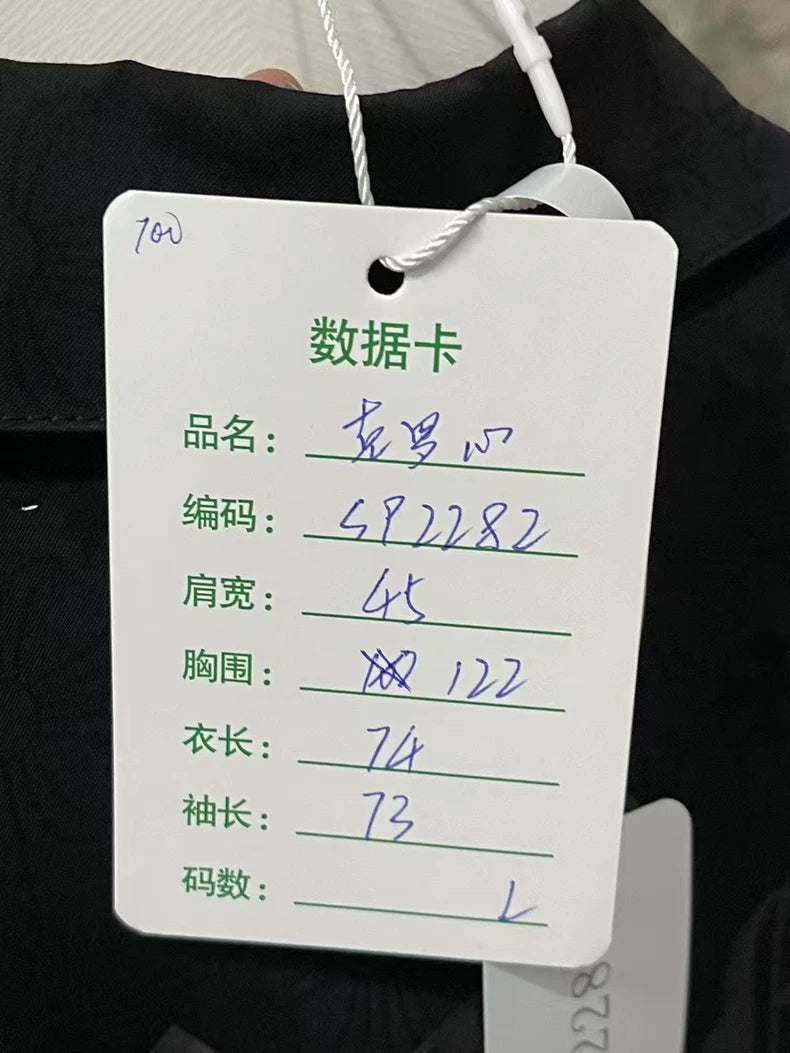 700
数据卡
品名：克罗心
编码：SP2282
肩宽：45
胸围：122
衣长：74
袖长：73
码数：L
228